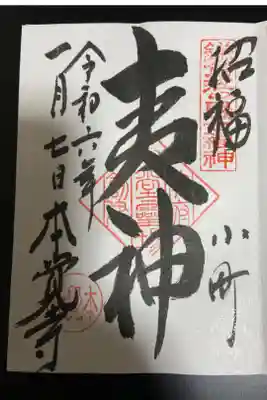 招福
小町
夷神
令和六年
一月七日本覚寺